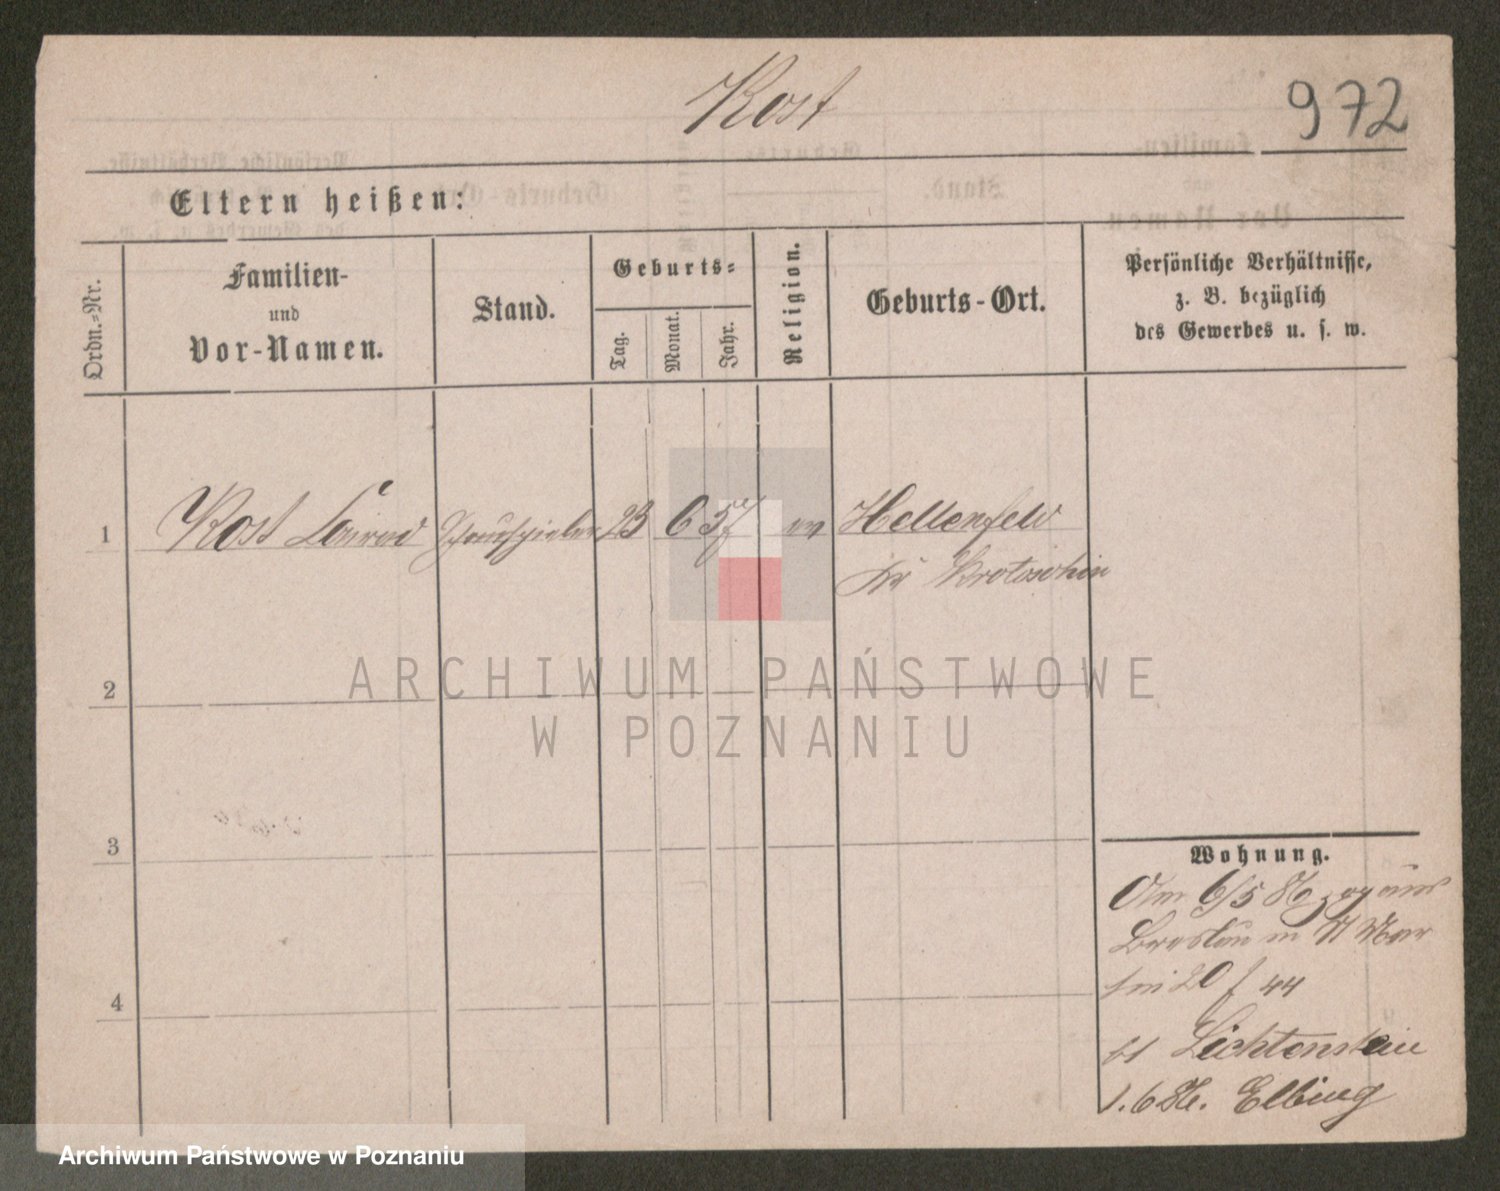 Kost
972
Eltern heißen:
Ordn.-Nr.
Familien-
und
Vor-Namen.
Stand.
Geburts-
Tag.
Monat.
Jahr.
Religion.
Geburts-Ort.
Persönliche Verhältnisse,
z. B. bezüglich
des Gewerbes u. s. w.
1 Kost Conrad Schauspieler 23 6 57 ev Hellenfeld
Kr Krotoschin
2
3
4
Wohnung.
Am 6/5 86 zog aus
Breslau n St Mar
tin 20 f 44
bei Lichtenstein
1.6 86. Elbing
ARCHIWUM PAŃSTWOWE
W POZNANIU
Archiwum Państwowe w Poznaniu